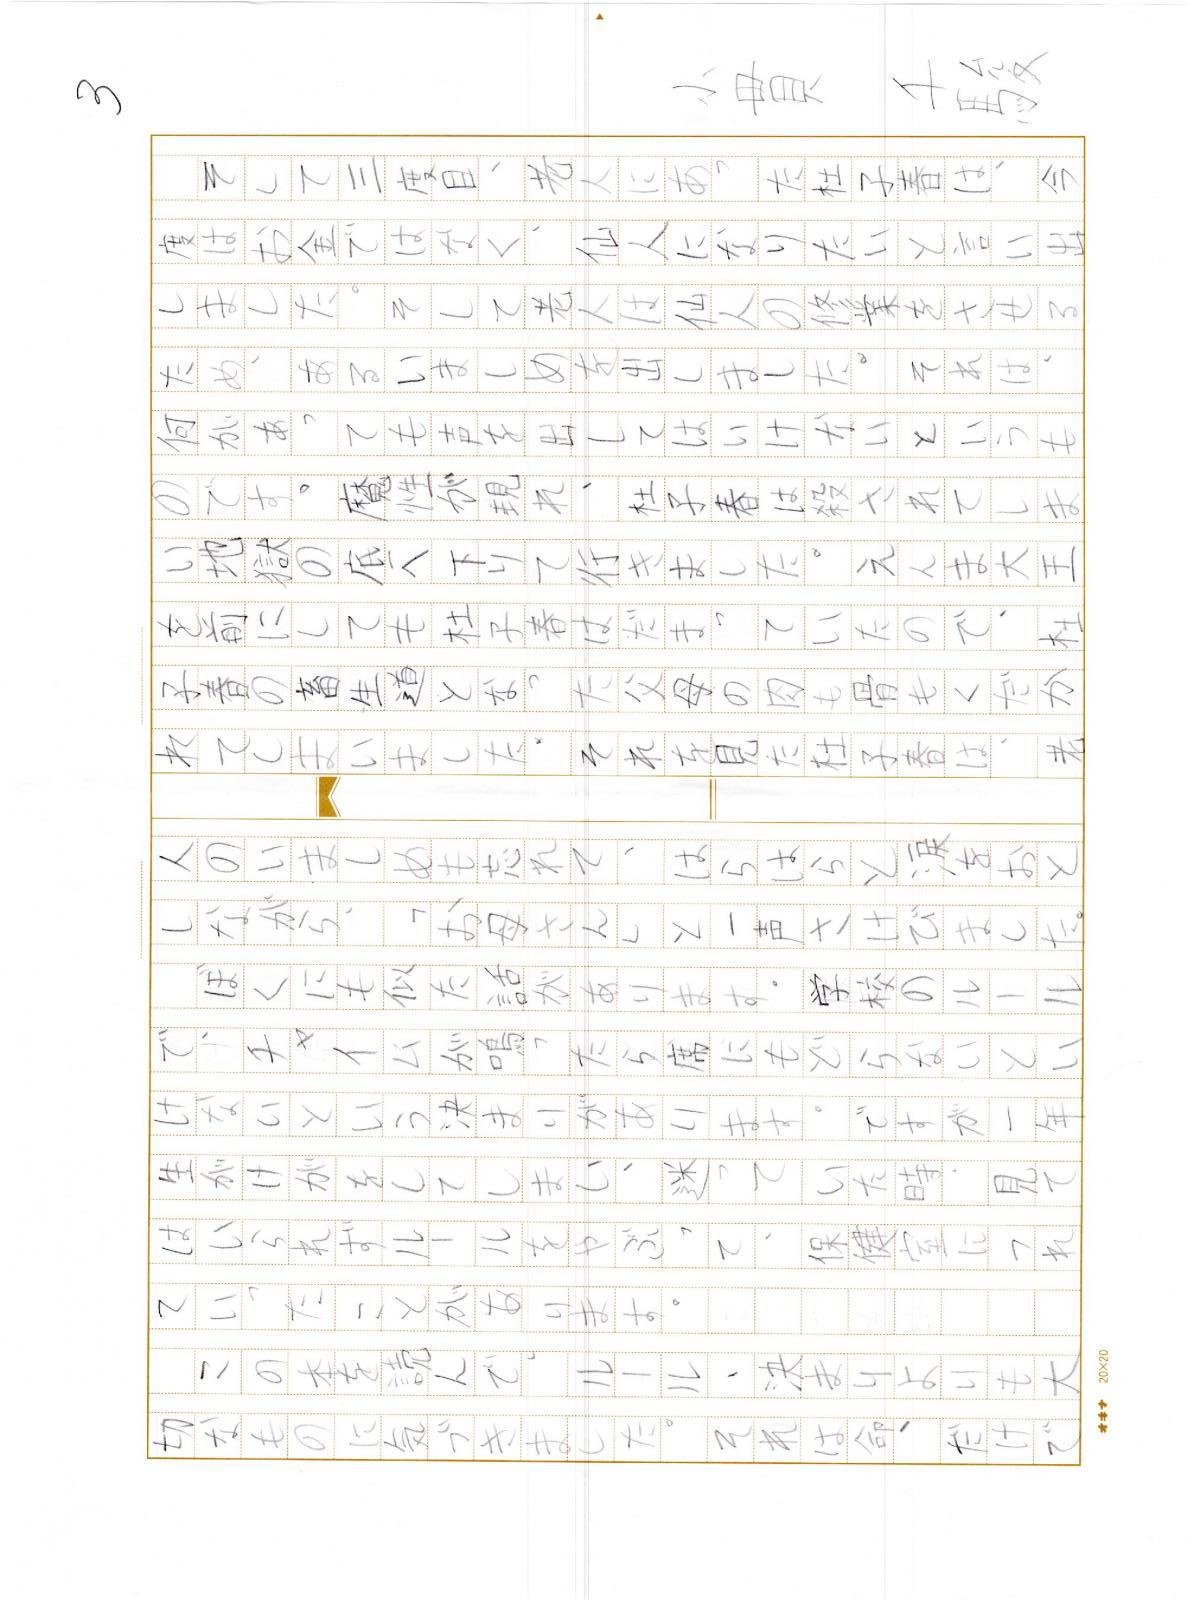 3
小貫
そして三度目、老人にあった杜子春は、今
度はお金ではなく、仙人になりたいと言い出
しました。そして老人は仙人の修業をさせる
ため、あるいましめを出しました。それは、
何があっても声を出してはいけないというも
のです。魔性が現れ、杜子春は殺されてしま
い地獄の底へ下りて行きました。えんま大王
を前にしても杜子春はだまっていたので、杜
子春の畜生道となった父母の肉も骨もくだか
れてしまいました。それを見た杜子春は、老
人のいましめも忘れて、はらはらと涙をおと
しながら、「お母さん」と一声さけびました。
ぼくにも似た話があります。学校のルール
で、チャイムが鳴ったら席にもどらないとい
けないという決まりがあります。ですが一年
生がけがをしてしまい、迷っていた時、見て
はいられずルールをやぶって、保健室につれ
ていったことがあります。
この本を読んで、ルール、決まりよりも大
切なものに気づきました。それは命、だけで
20×20